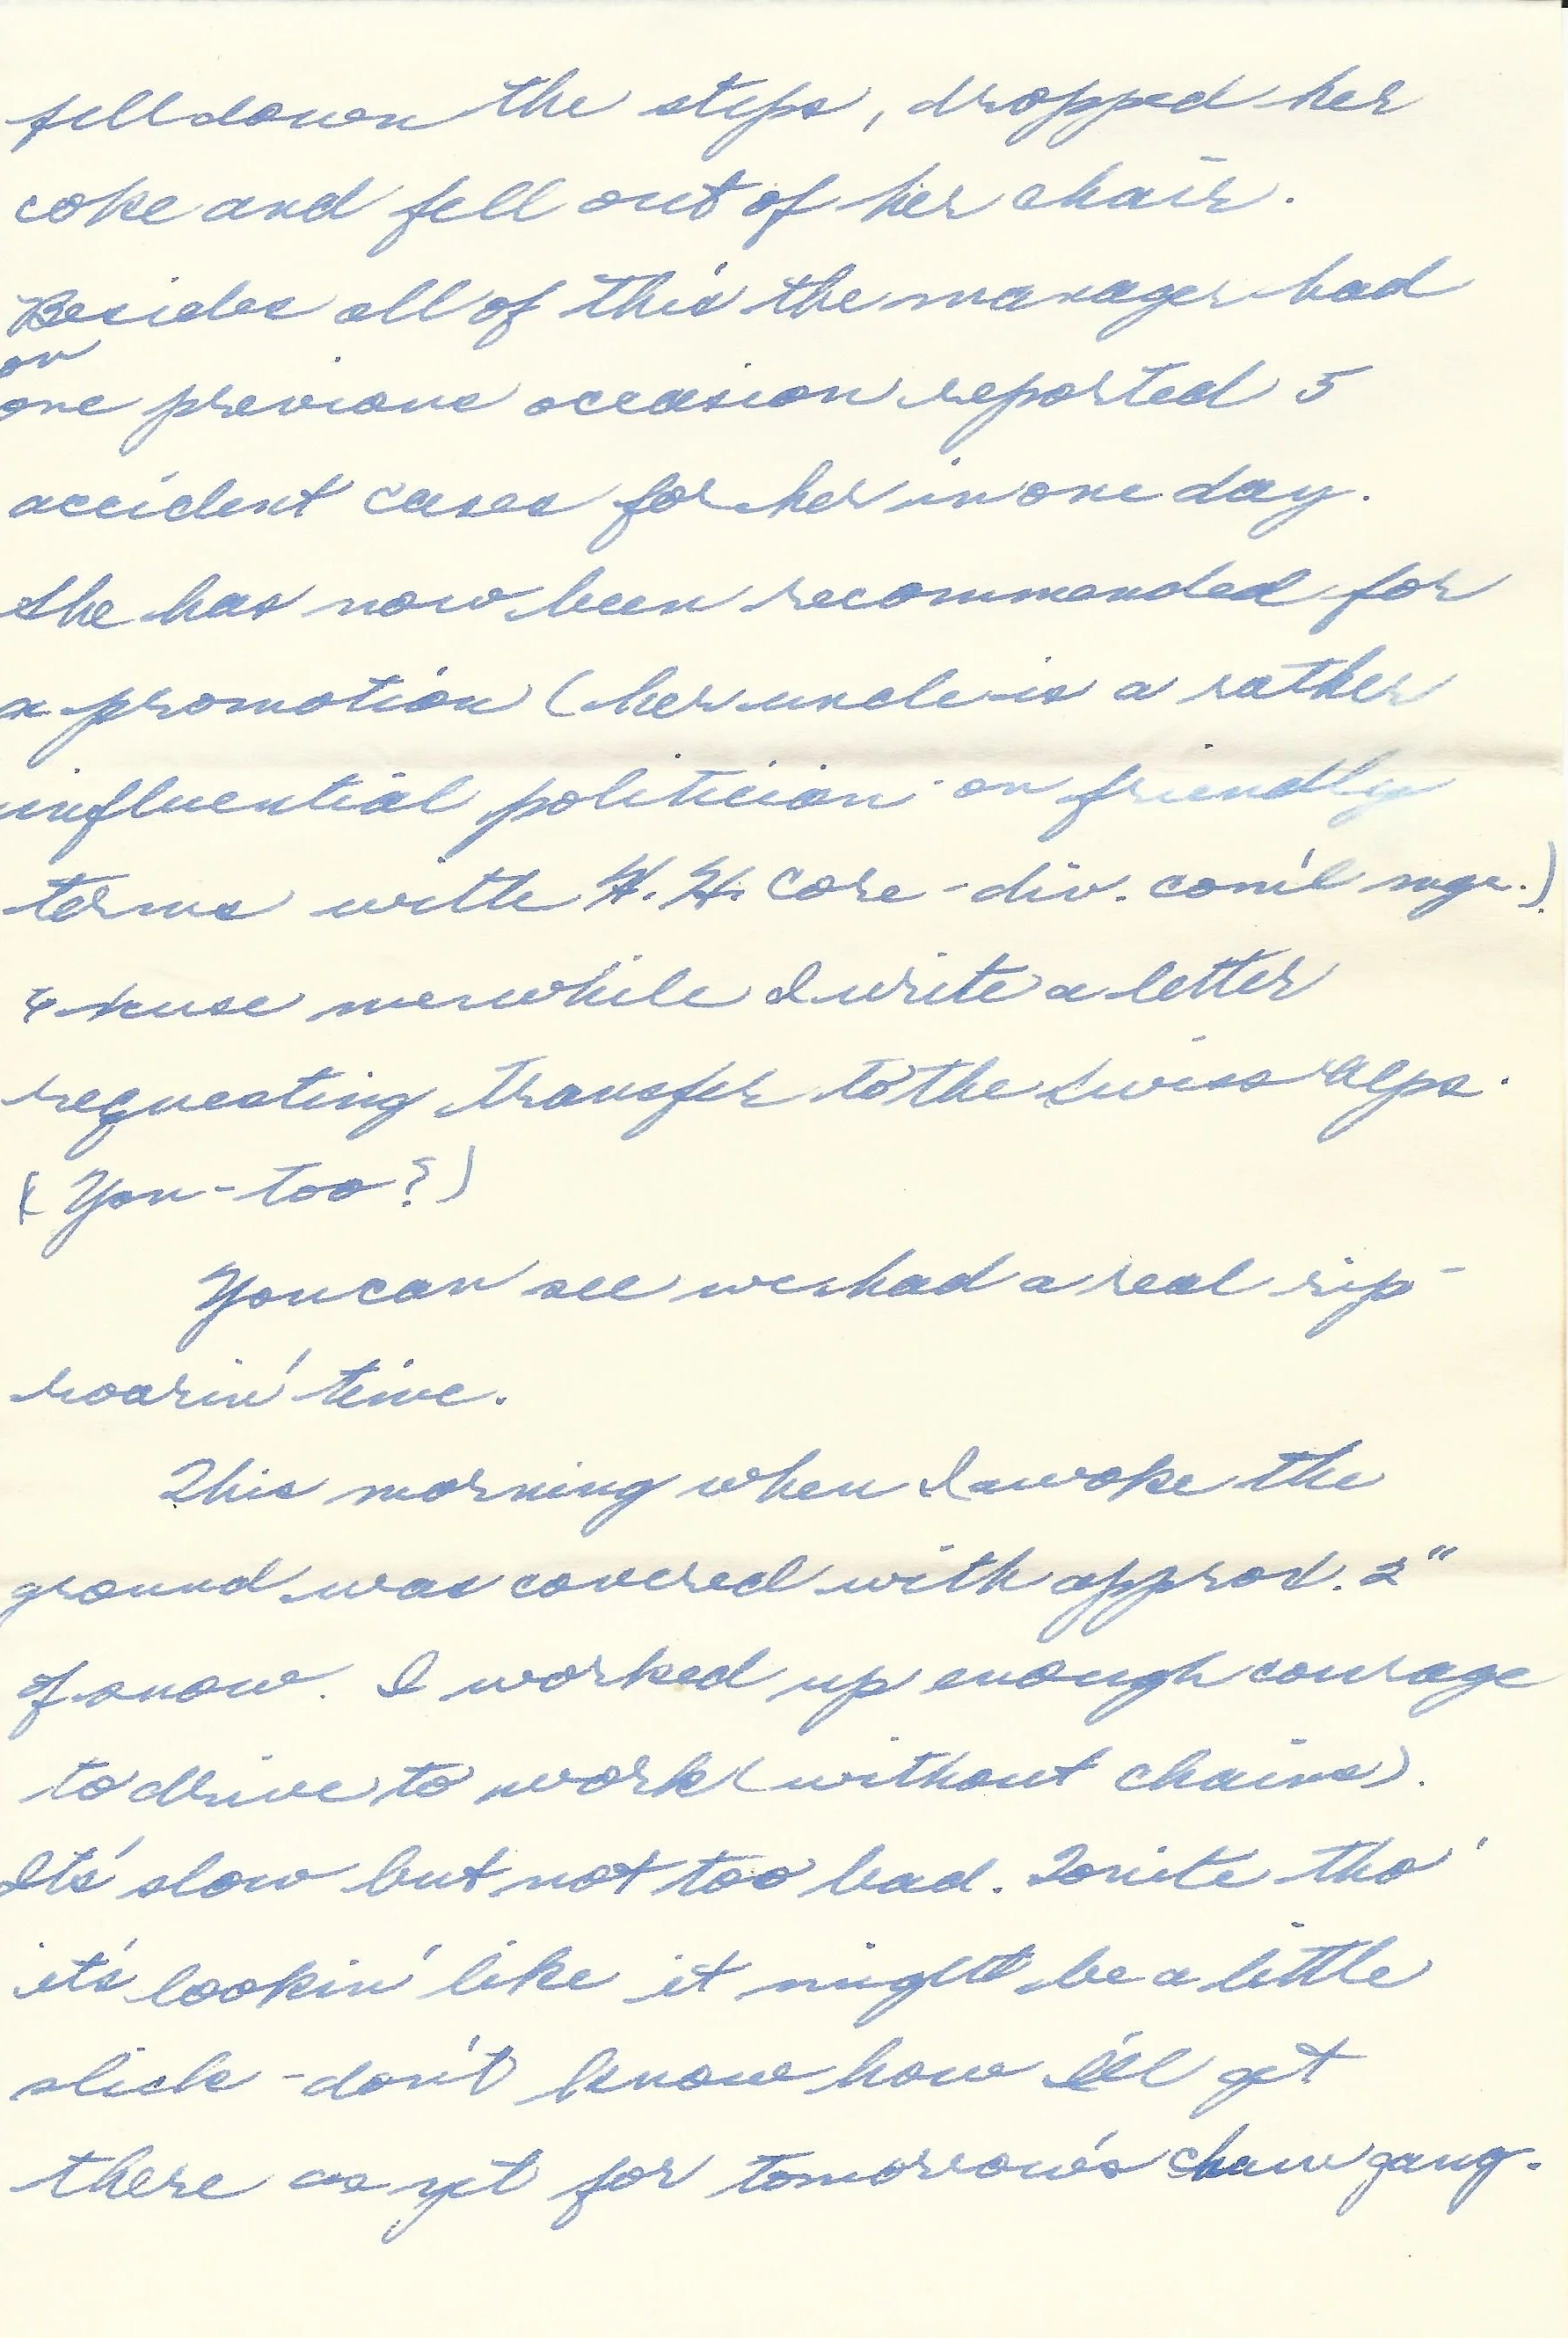 fell down the steps, dropped her
coke and fell out of her chair.
Besides all of this the manager had
on
one previous occasion reported 5
accident cases for her in one day.
She has now been recommended for
a promotion (her uncle is a rather
influential politician on friendly
terms with H. H. Core - div. com'l mgr.)
'xkuse me while I write a letter
requesting transfer to the Swiss Alps.
(You - too?)
You can see we had a real rip-
roarin' time.
This morning when I awoke the
ground was covered with approx. 2"
of snow. I worked up enough courage
to drive to work (without chains).
It's slow but not too bad. Tonite tho'
it's lookin' like it might be a little
slick - don't know how I'll get
there as yet for tomorrow's chain gang.